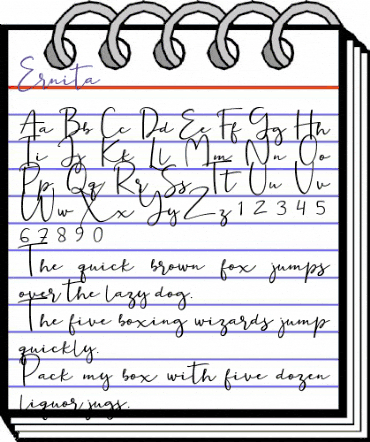 Ernita
Aa Bb Cc Dd Ee Ff Gg Hh
Ii Jj Kk Ll Mm Nn Oo
Pp Qq Rr Ss Tt Uu Vv
Ww Xx Yy Zz 1 2 3 4 5
6 7 8 9 0
The quick brown fox jumps
over the lazy dog.
The five boxing wizards jump
quickly.
Pack my box with five dozen
liquor jugs.